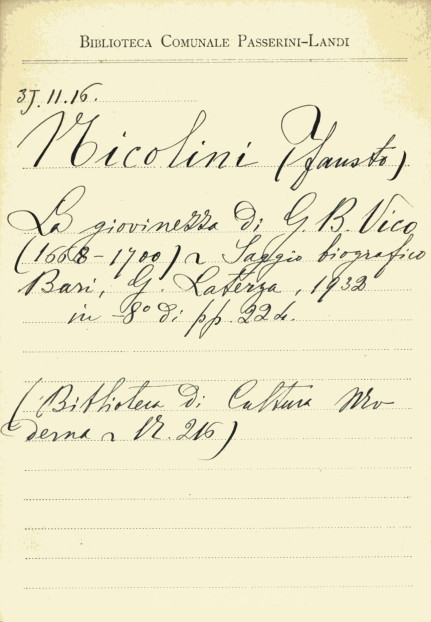 BIBLIOTECA COMUNALE PASSERINI-LANDI
3J.11.16.
Nicolini (Fausto)
La giovinezza di G. B. Vico
(1668-1700) ~ Saggio biografico
Bari, G. Laterza, 1932
in -8° di pp. 224.
(Biblioteca di Cultura Mo-
derna ~ N. 216)